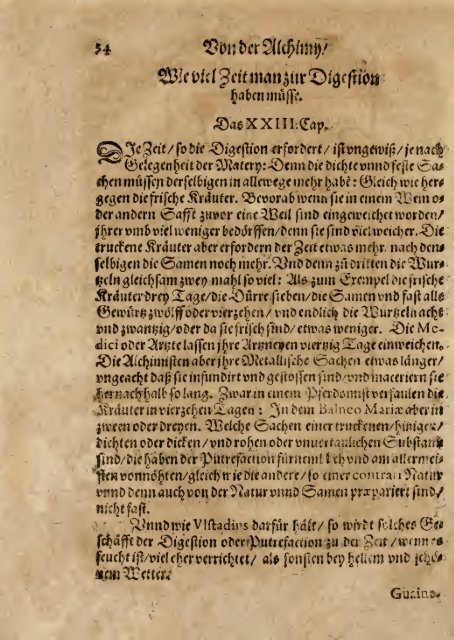 54 Von der Alchimy/
Wie viel Zeit man zur Digestion
haben müsse.
Das XXIII. Cap.
DIe Zeit / so die Digestion erfordert / ist vngewiß / je nach
Gelegenheit der Matery: Denn die dichte vnnd feste Sa-
chen müssen derselbigen in allewege mehr habē: Gleich wie her-
gegen die frische Kräuter. Bevorab wenn sie in einem Wein o-
der andern Safft zuvor eine Weil sind eingeweichet worden/
jhrer vmb viel weniger bedörffen / denn sie sind viel weicher. Die
truckene Kräuter aber erfordern der Zeit etwas mehr. nach den-
selbigen die Samen noch mehr. Vnd denn zū dritten die Wur-
tzeln gleichsam zwey mahl so viel: Als zum Exempel die frische
Kräuter drey Tage / die Dürre sieben / die Samen vnd fast alle
Gewürtz zwölff oder vierzehen / vnd endlich die Wurtzeln acht
vnd zwantzig / oder da sie frisch sind / etwas weniger. Die Me-
dici oder Artzte lassen jhre Artzneyen viertzig Tage einweichen.
Die Alchimisten aber jhre Metallische Sachen etwas länger/
vngeacht daß sie infundirt vnd gestossen sind / vnd maceriern sie
hernach halb so lang. Zwar in einem Pferdsmist verfaulen die
Kräuter in vierzehen Tagen: In dem Balneo Mariæ aber in
zween oder dreyen. Welche Sachen einer truckenen / hitzigen/
dichten oder dicken / vnd rohen oder vnuertaulichen Substantz
sind / die haben der Putrefaction fürnemlich vnd am allermei-
sten vonnöhten / gleich wie die andere / so einer contrari Natur
vnnd denn auch von der Natur vnnd Samen præpariert sind/
nicht fast.
Vnnd wie Vlstadius darfür hält / so wirdt solches Ge-
schäfft der Digestion oder Putrefaction zu der Zeit / wenn es
feucht ist / viel eher verrichtet / als sonsten bey hellem vnd schö-
nem Wetter.